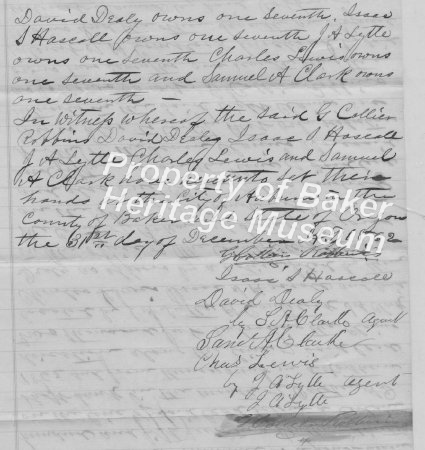 David Dealy owns one seventh. Isaac
S Hascall owns one seventh J A Lytle
owns one seventh Charles Lewis owns
one seventh and Samuel A Clark owns
one seventh —
In Witness whereof the said G Collier
Robbins David Dealy Isaac S Hascall
J A Lytle Charles Lewis and Samuel
A Clark set their
hands the
County of Baker State of
the 31st day of December
Property of Baker
Heritage Museum
Isaac S Hascall
David Dealy
by S A Clarke Agent
Saml A Clarke
Chas Lewis
by J A Lytle agent
J A Lytle